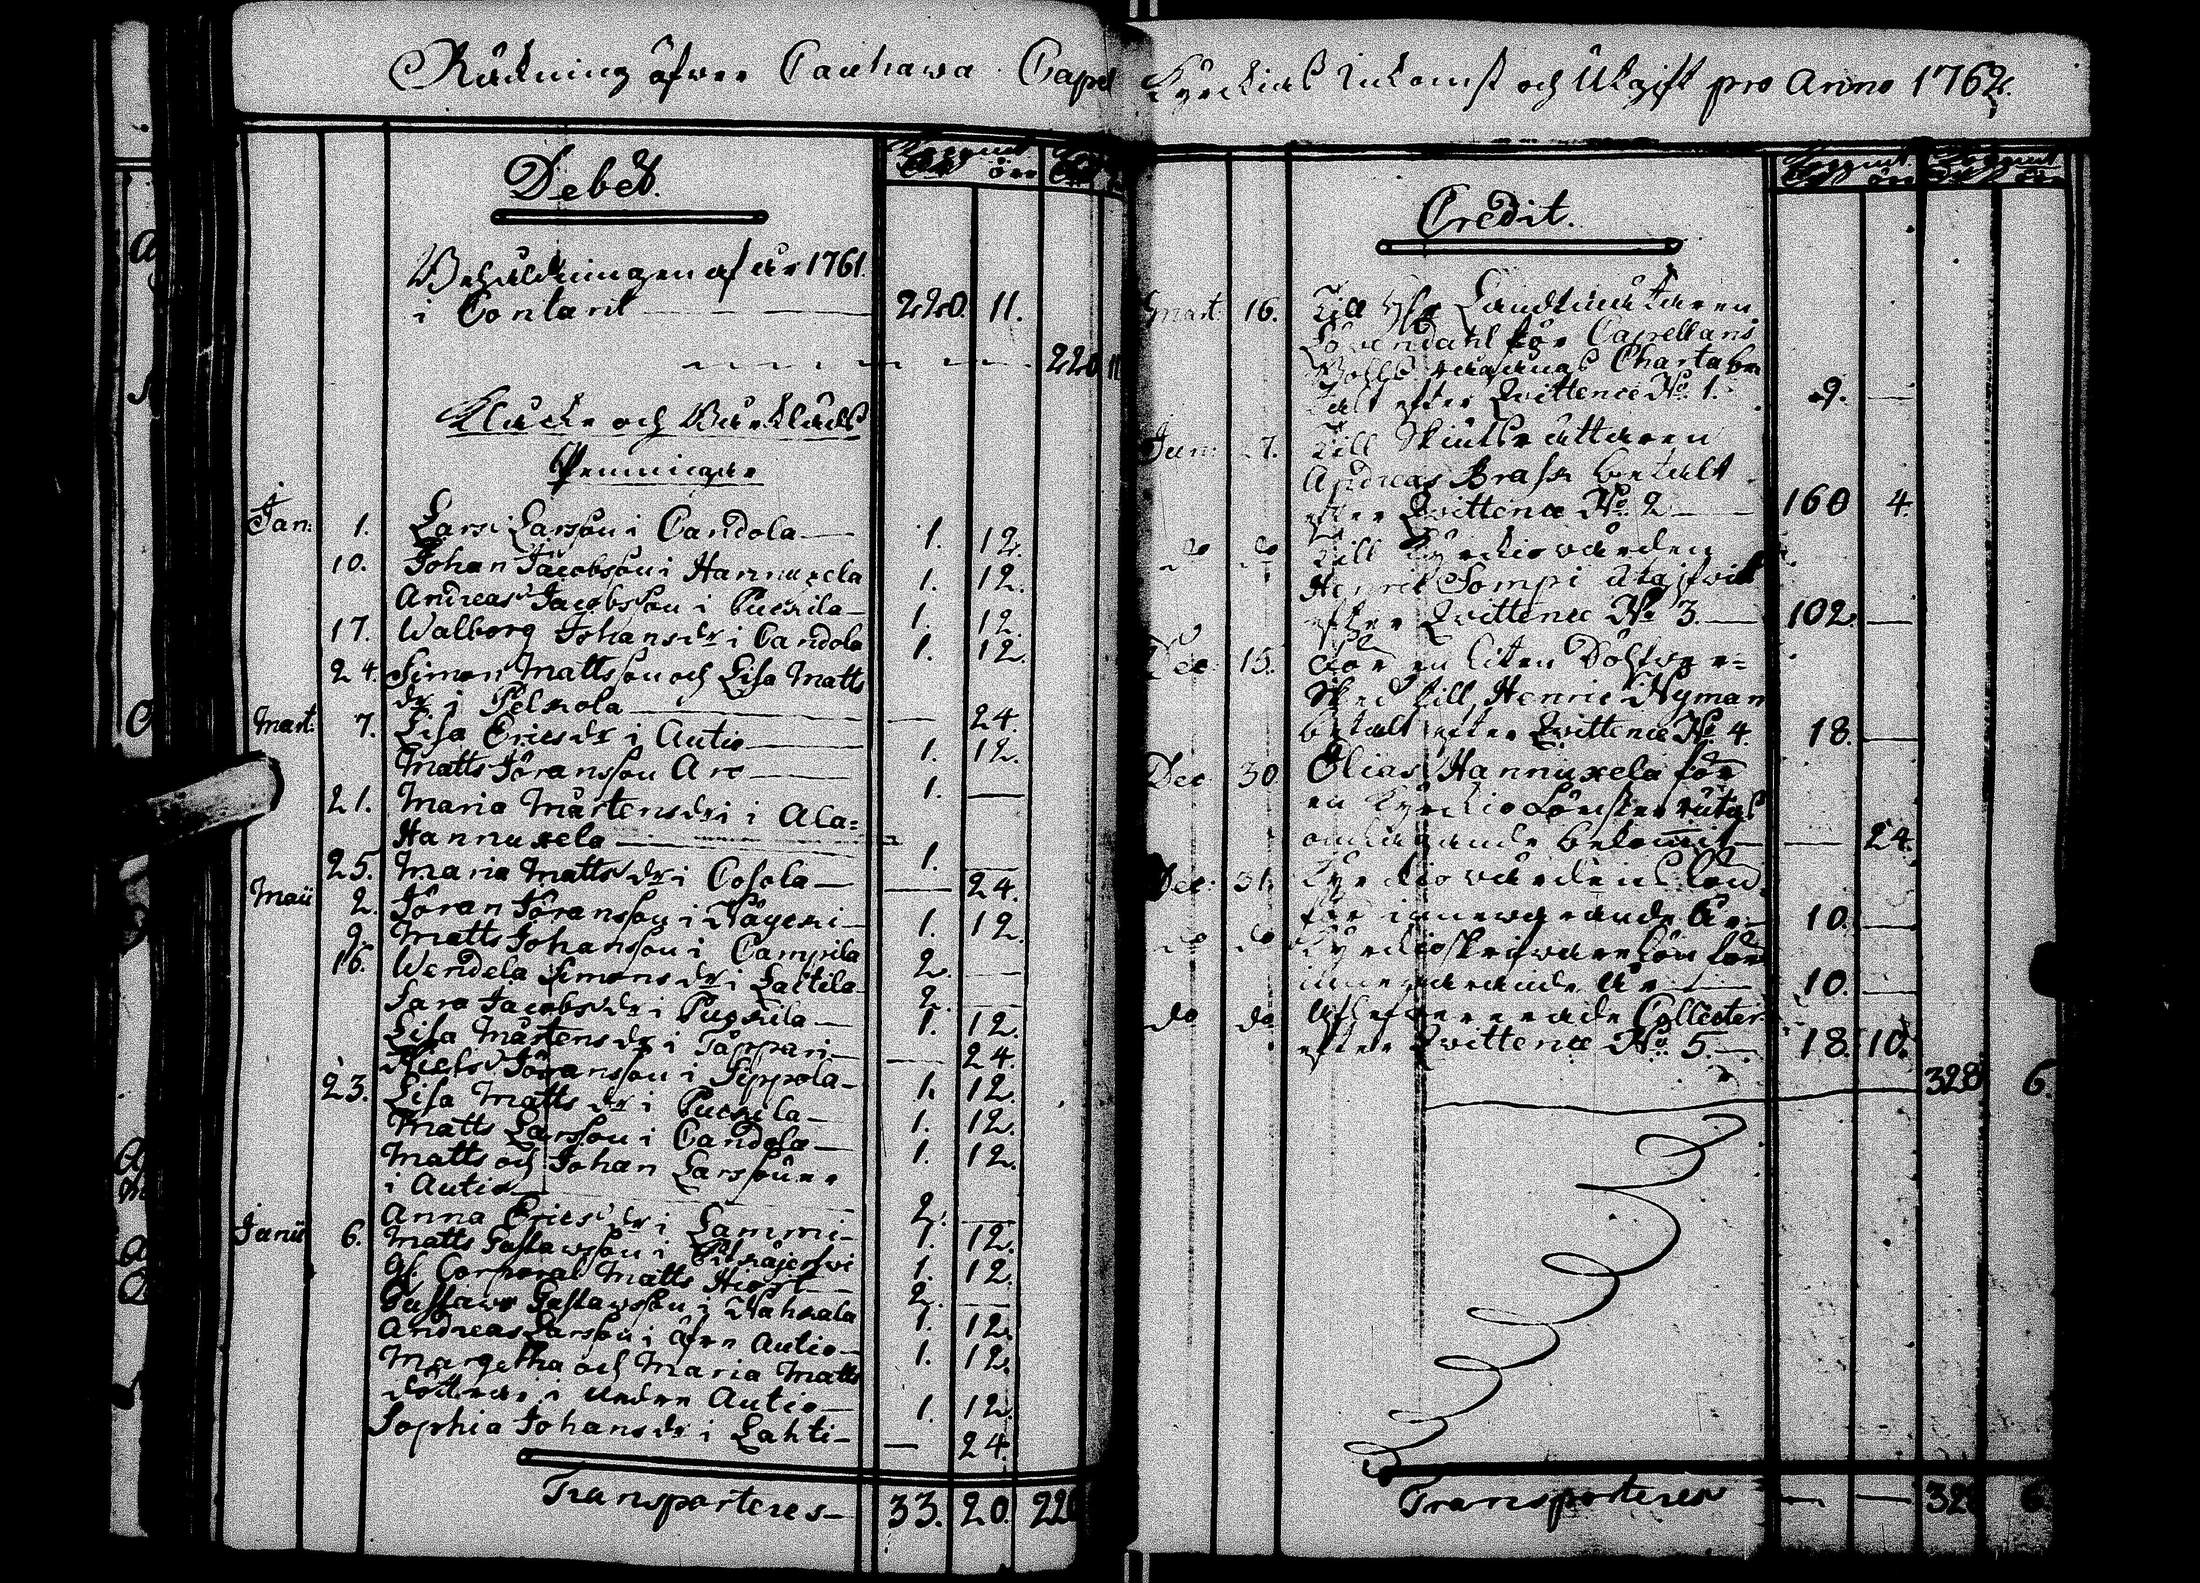 Räckning öfwer Cauhawa Capel Kyrckias Inkomst och Utgift pro Anno 1762.
Debet.
Behåldningen af år 1761.
i Contant 220. 11.
220 11
Klocke och Bårklädes
Penningar
Jan: 1. Lars Larsson i Candola 1. 12.
10. Johan Jacobsson i Hannuxela 1. 12.
Andreas Jacobsson i Puckila 1. 12.
17. Walborg Johansdr i Candola 1. 12.
24. Simon Mattsson och Lisa Matts
dr i Pelkola — 24.
Mart: 7. Lisa Ericsdr i Autio 1. 12.
Matts Jöransson Aro 1. —
21. Maria Mårtensdr i Ala=
Hannuxela 1. —
25. Maria Mattsdr i Cosola — 24.
Maii 2. Jöran Jöransson i 1. 12.
9. Matts Johansson i Campila 2. —
16. Wendela Simonsdr i Lattila 2. —
Sara Jacobsdr i Puckila 1. 12.
Lisa Mårtensdr i Tåppari — 24.
Niels Jöransson i Sippola 1. 12.
23. Lisa Mattsdr i Puckila 1. 12.
Matts Larsson i Candola 1. 12.
Matts och Johan Larssöner
i Autio 2. —
Anna Ericsdr i Lammi 1. 12.
Junii 6. Matts Gustavsson i Pitkäjerfwi 1. 12.
gl. Corporal Matts Hiort 2. —
Gustaw Gustawsson i 1. 12.
Andreas Larsson i öfre Autio 1. 12.
Margetha och Maria Matts
döttrar i nedre Autio 1. 12.
Sophia Johansdr i Lahti — 24.
Transporteres 33. 20. 220
Credit.
Mart: 16. Till Hr Landtmätaren
Löwendahl för Capellans
Bolls Charta be
talt efter Qvittence No. 1. 9. —
Jun: 27. Till
Andreas Brask betalt
efter Qvittence No. 2 160 4.
do do Till Kyrckiowärden
Henric Sompi utgifwit
efter Qvittence No 3. 102. —
Dec: 15. För en liten
till Henric Nyman
betalt efter Qvittence No. 4. 18. —
Dec 30. Elias Hannuxela för
en Kyrckio fönster rutas
omlagande bekommit — 24.
Dec: 31. Kyrckiowärdens lön
för innewarande år 10. —
do do Kyrckioskrifware lön för
innewarande år 10. —
do do Aflefwererade Collecter
efter Qvittence No. 5. 18. 10.
328 6.
Transporteres — — 328 6.